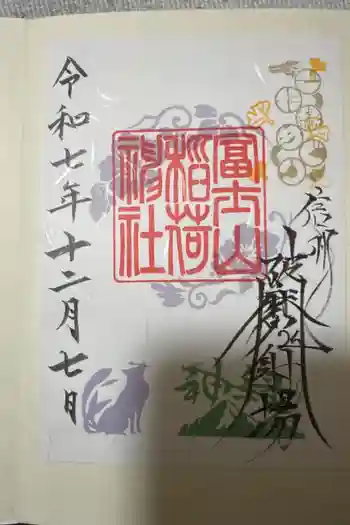 信州
冨士山
稲荷
神社
令和七年十二月七日